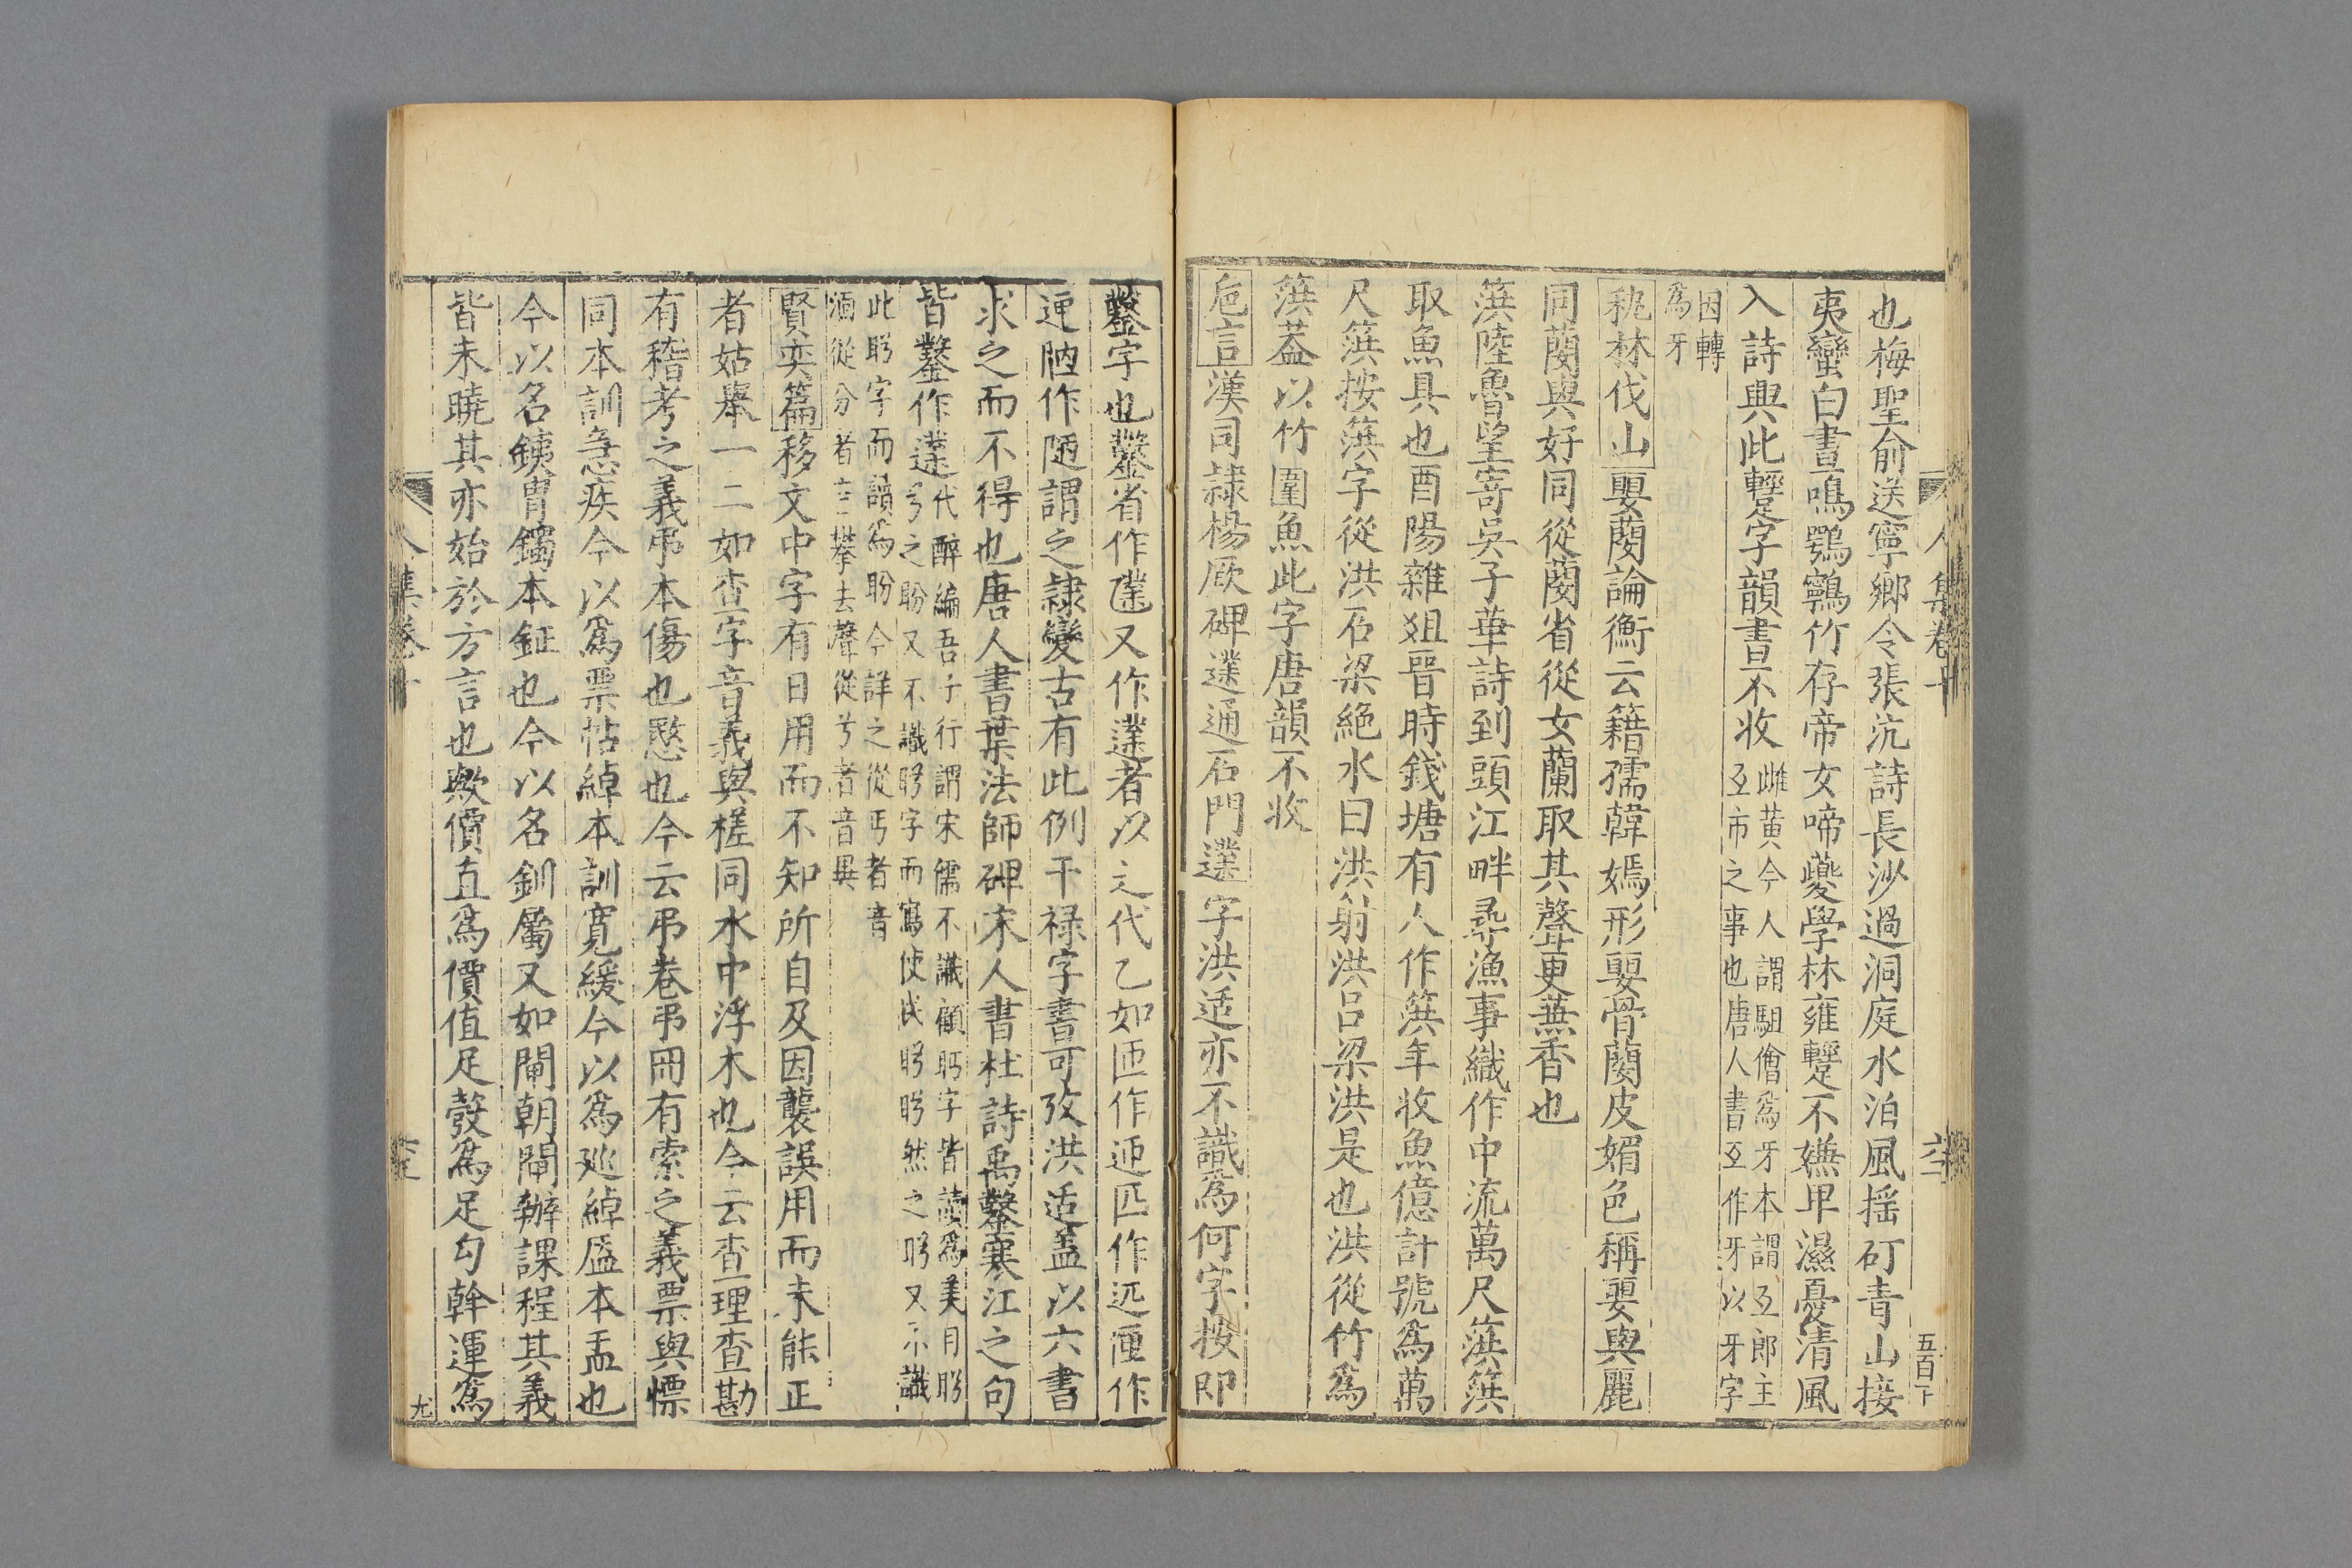 也梅聖俞送寧鄉令張沆詩長沙過洞庭水泊風揺矴青山接
夷蠻白晝鳴鶚鸋竹存帝女啼夔學林雍躗不嫌卑濕憂清風
入詩與此躗字韻書不收
雌黄今人謂馹儈爲牙本謂互郎主
互市之事也唐人書互作牙以牙字
因轉
爲牙
秇林伐山㛲薾論衡云籍孺韓嫣形㛲骨薾皮媚色稱㛲與麗
同薾與好同從薾省從女蘭取其聲更蕪香也
篊陸魯望寄吳子華詩到頭江畔尋漁事織作中流萬尺篊篊
取魚具也酉陽雜俎晉時錢塘有人作篊年收魚億計號爲萬
尺篊按篊字從洪石梁絶水曰洪射洪吕梁洪是也洪從竹爲
篊葢以竹圍魚此字唐韻不收
巵言漢司隸楊厥碑遳通石門遳字洪适亦不識爲何字按即
鑿字也鑿省作𨐌又作遳者以辶代乙如匝作迊匹作迊匯作
逥陋作陋謂之隷變古有此例干禄字書可攷洪适盖以六書
求之而不得也唐人書葉法師碑宋人書杜詩禹鑿寒江之句
皆鑿作遳
代醉編吾子行謂宋儒不識顧眄字皆讀爲美目盼
兮之盼又不識盻字而寫使民盻盻然之盻又不識
此盻字而讀爲盼今詳之從丏者音
湎從分者音攀去聲從兮者音異
賢奕篇移文中字有日用而不知所自及因襲誤用而未能正
者姑舉一二如查字音義與槎同水中浮木也今云查理查勘
有稽考之義弔本傷也愍也今云弔巻弔冊有索之義票與慓
同本訓急疾今以爲票帖綽本訓寛緩今以爲廵綽盔本盂也
今以名鐵胄鐲本鉦也今以名釧屬又如閘朝閘辦課程其義
皆未曉其亦始於方言也歟價直爲價值足彀爲足勾幹運爲